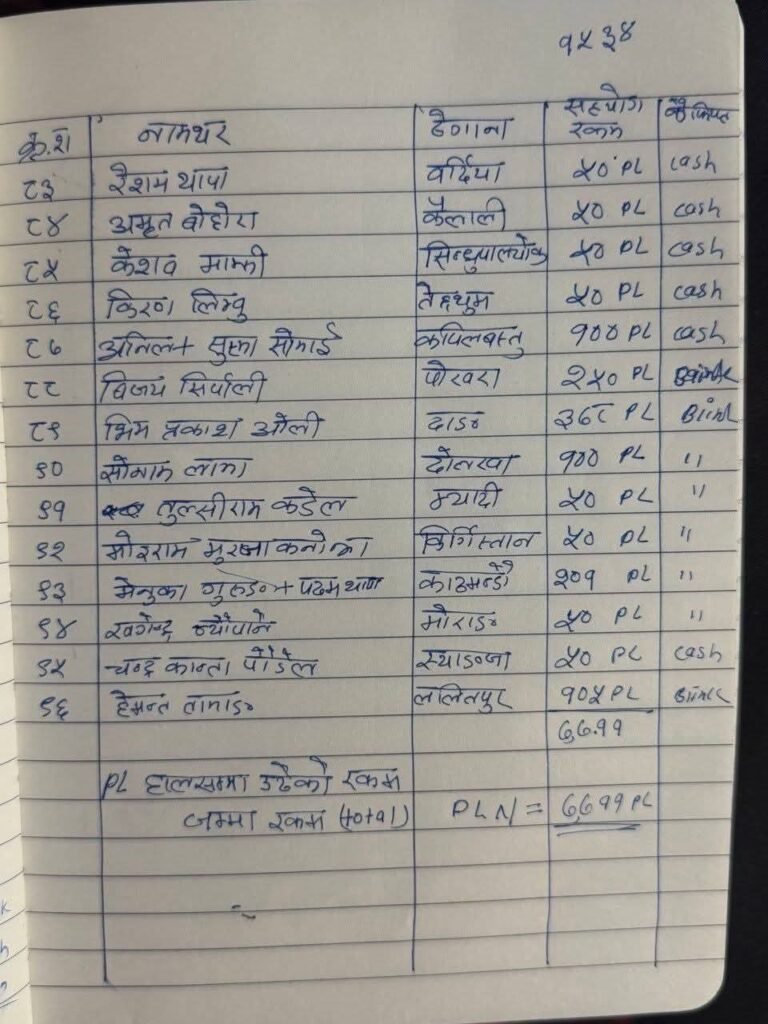 १५३४
क्र.श नामथर ठेगाना सहयोग रकम कैफियत
८३ रेशम थापा वर्दिया ५० PL cash
८४ अमृत बोहोरा कैलाली ५० PL cash
८५ केशव माझी सिन्धुपाल्चोक ५० PL cash
८६ किरण लिम्बु तेह्रथुम ५० PL cash
८७ अनिल + सोमाई कपिलबस्तु १०० PL cash
८८ बिजय सिर्पाली पोखरा २५० PL
८९ भिम प्रकाश ओली दाङ ३६८ PL
९० सोनाम लामा दोलखा १०० PL "
९१ तुल्सीराम कडेल म्यादी ५० PL "
९२ किर्गिस्तान ५० PL "
९३ मेनुका गुरुङ + पदम थापा काठमान्डौ २०१ PL "
९४ खगेन्द्र न्यौपाने मोराङ ५० PL "
९५ चन्द्र कान्ता पौडेल स्याङजा ५० PL cash
९६ हेमन्त तामाङ ललितपुर १०५ PL
6,6११
PL हालसम्मा उठेको रकम
जम्मा रकम (total) PLN/= 6,6११ PL